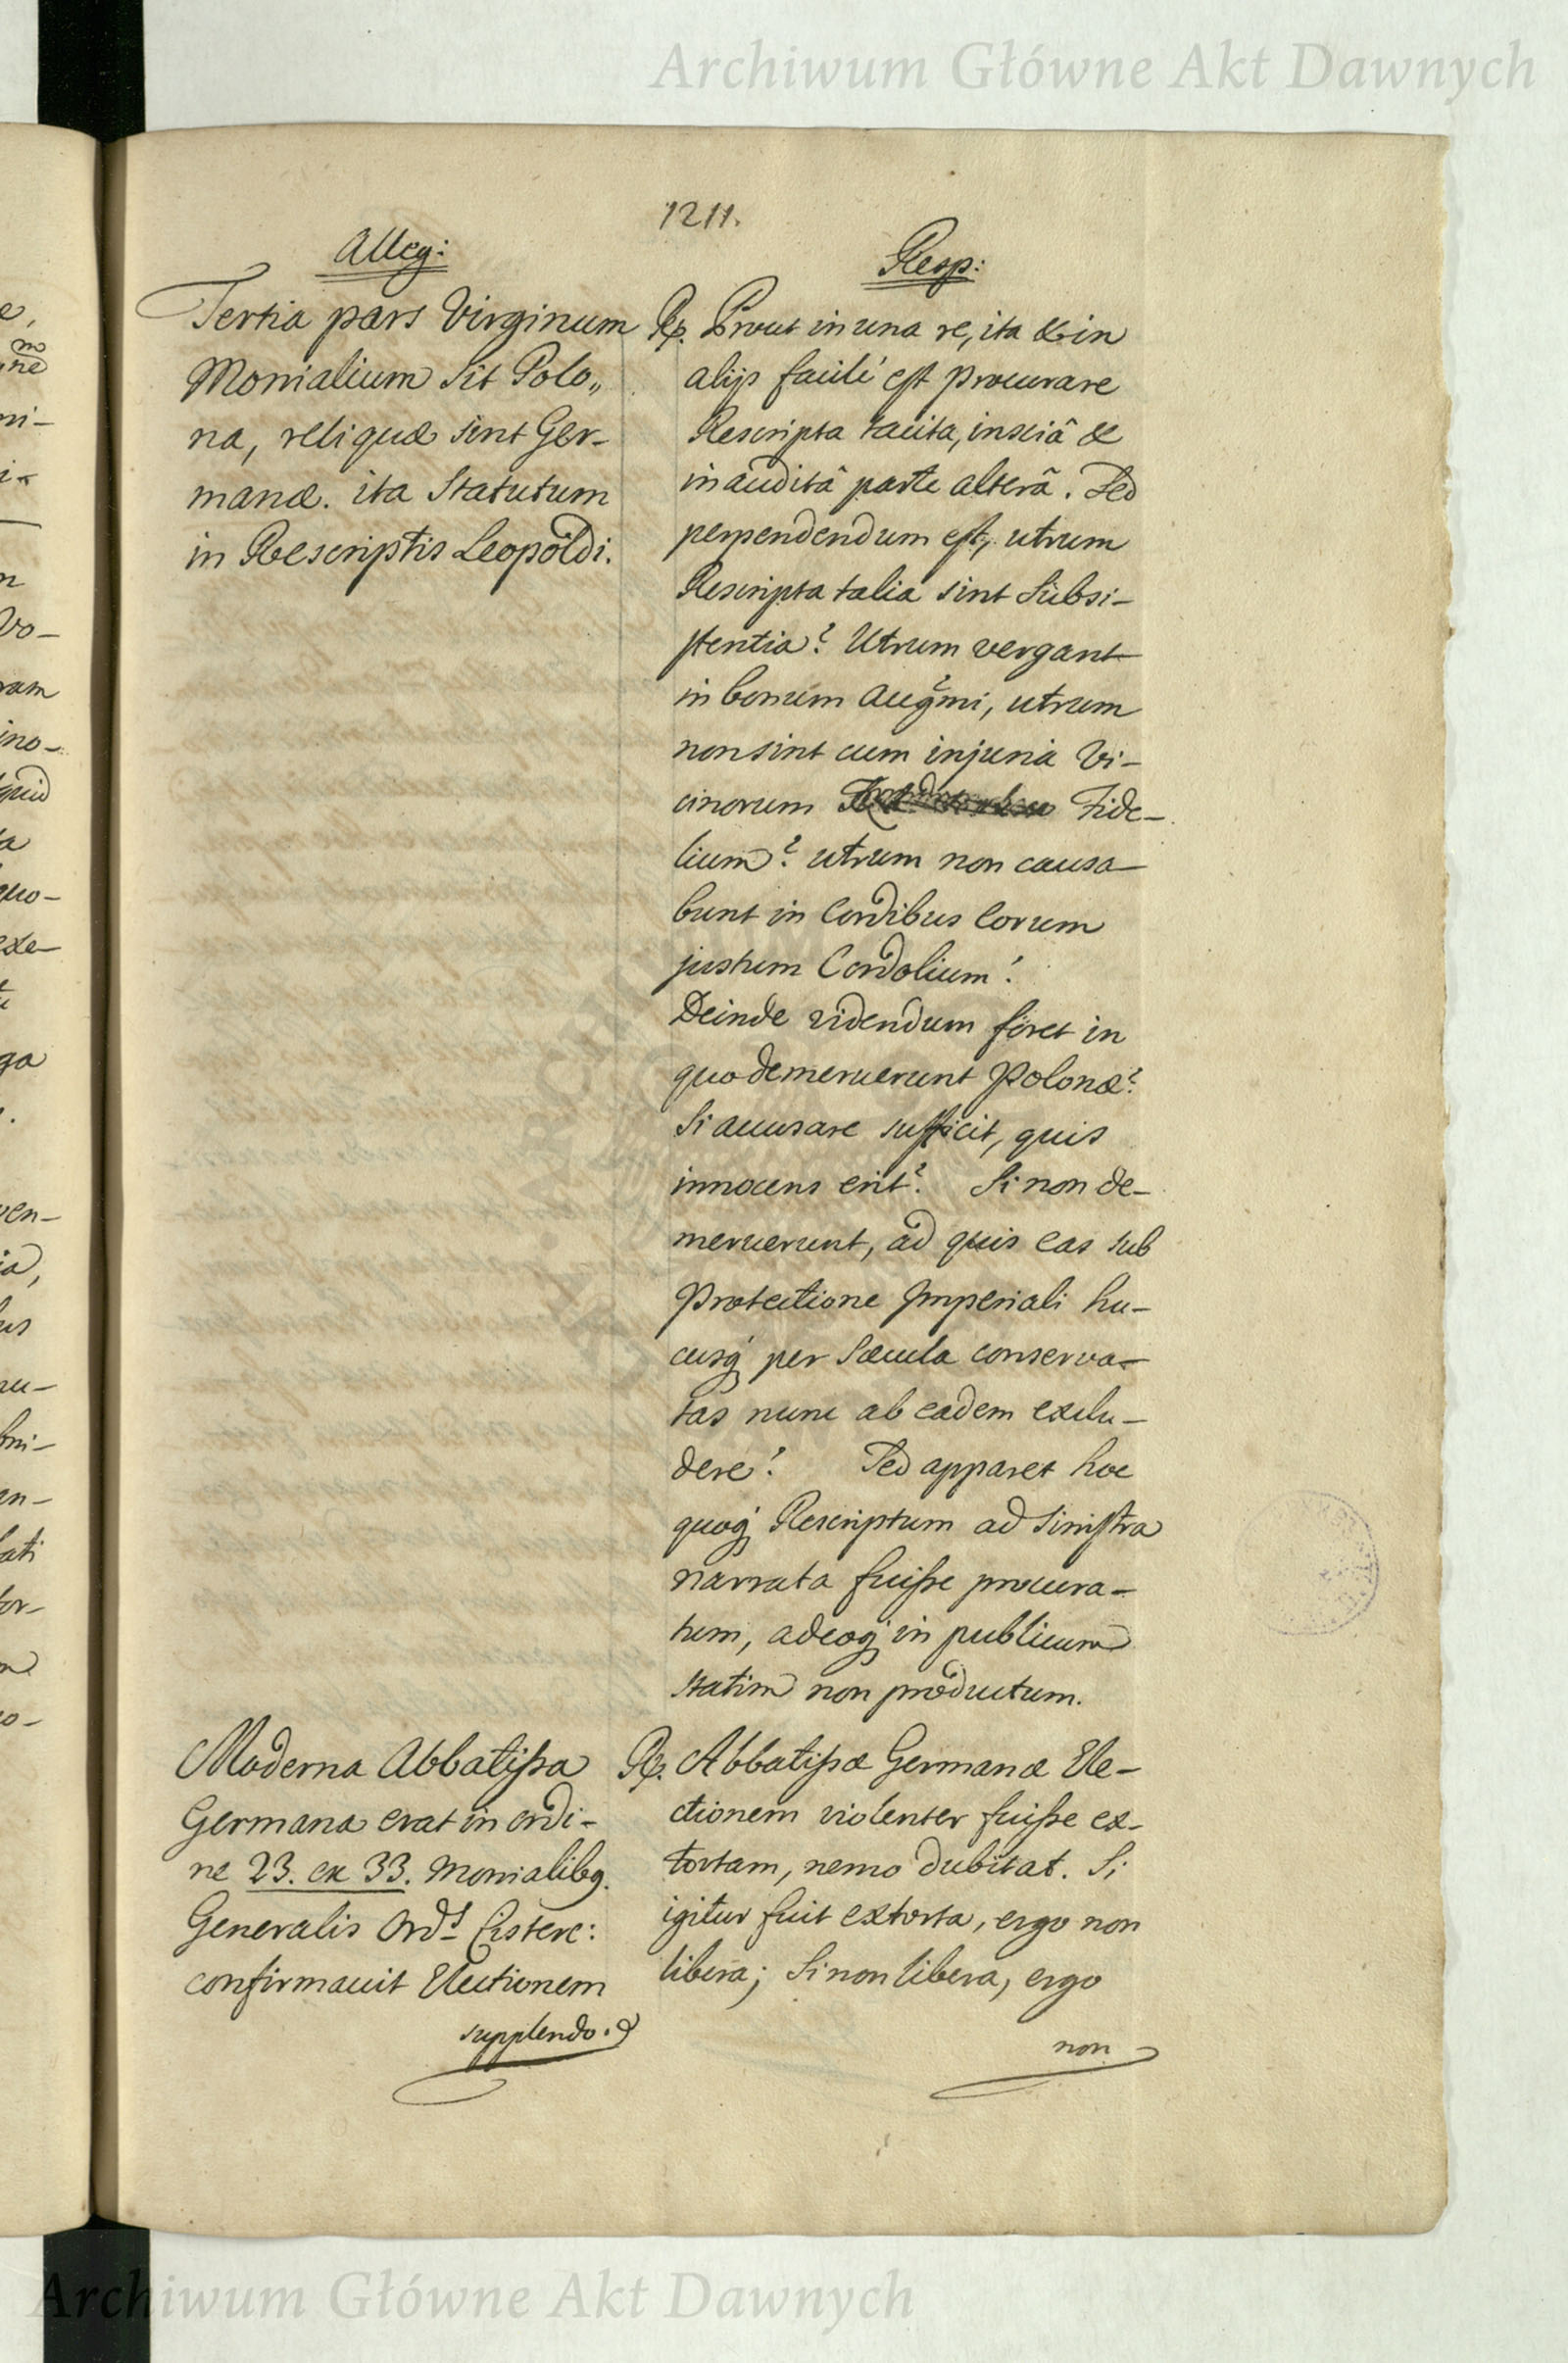 Archiwum Główne Akt Dawnych
1211.
Alleg:
Tertia pars Virginum
Monialium sit Polo„
na, reliquæ sint Ger-
manæ. ita Statutum
in Rescriptis Leopoldi.
Resp:
Rp. Prout in una re, ita & in
alijs facilé est procurare
Rescripta tacita, insciâ &
inauditâ parte alterâ. Sed
perpendendum est, utrum
Rescripta talia sint Subsi-
stentia? Utrum vergant
in bonum Augmi, utrum
non sint cum injuria Vi-
cinorum Fide-
lium? utrum non causa-
bunt in Cordibus eorum
justum Cordolium?
Deinde videndum foret in
quo demeruerunt Polonæ?
Si accusare sufficit, quis
innocens erit? Si non de-
meruerunt, ad quis eas sub
Protectione Imperiali hu-
cusq; per Sæcula conserva-
tas nunc ab eadem exclu-
dere? Sed apparet hoc
quoq; Rescriptum ad Sinistra
narrata fuisse procura-
tum, adeoq; in publicum
statim non productum.
Moderna Abbatissa
Germana erat in ordi-
ne 23. ex 33. Monialibq.
Generalis Ords Cisterc:
confirmavit Electionem
supplendo. &
Rp. Abbatissæ Germanæ Ele-
ctionem violenter fuisse ex-
tortam, nemo dubitat. Si
igitur fuit extorta, ergo non
libera; Si non libera, ergo
non
Archiwum Główne Akt Dawnych